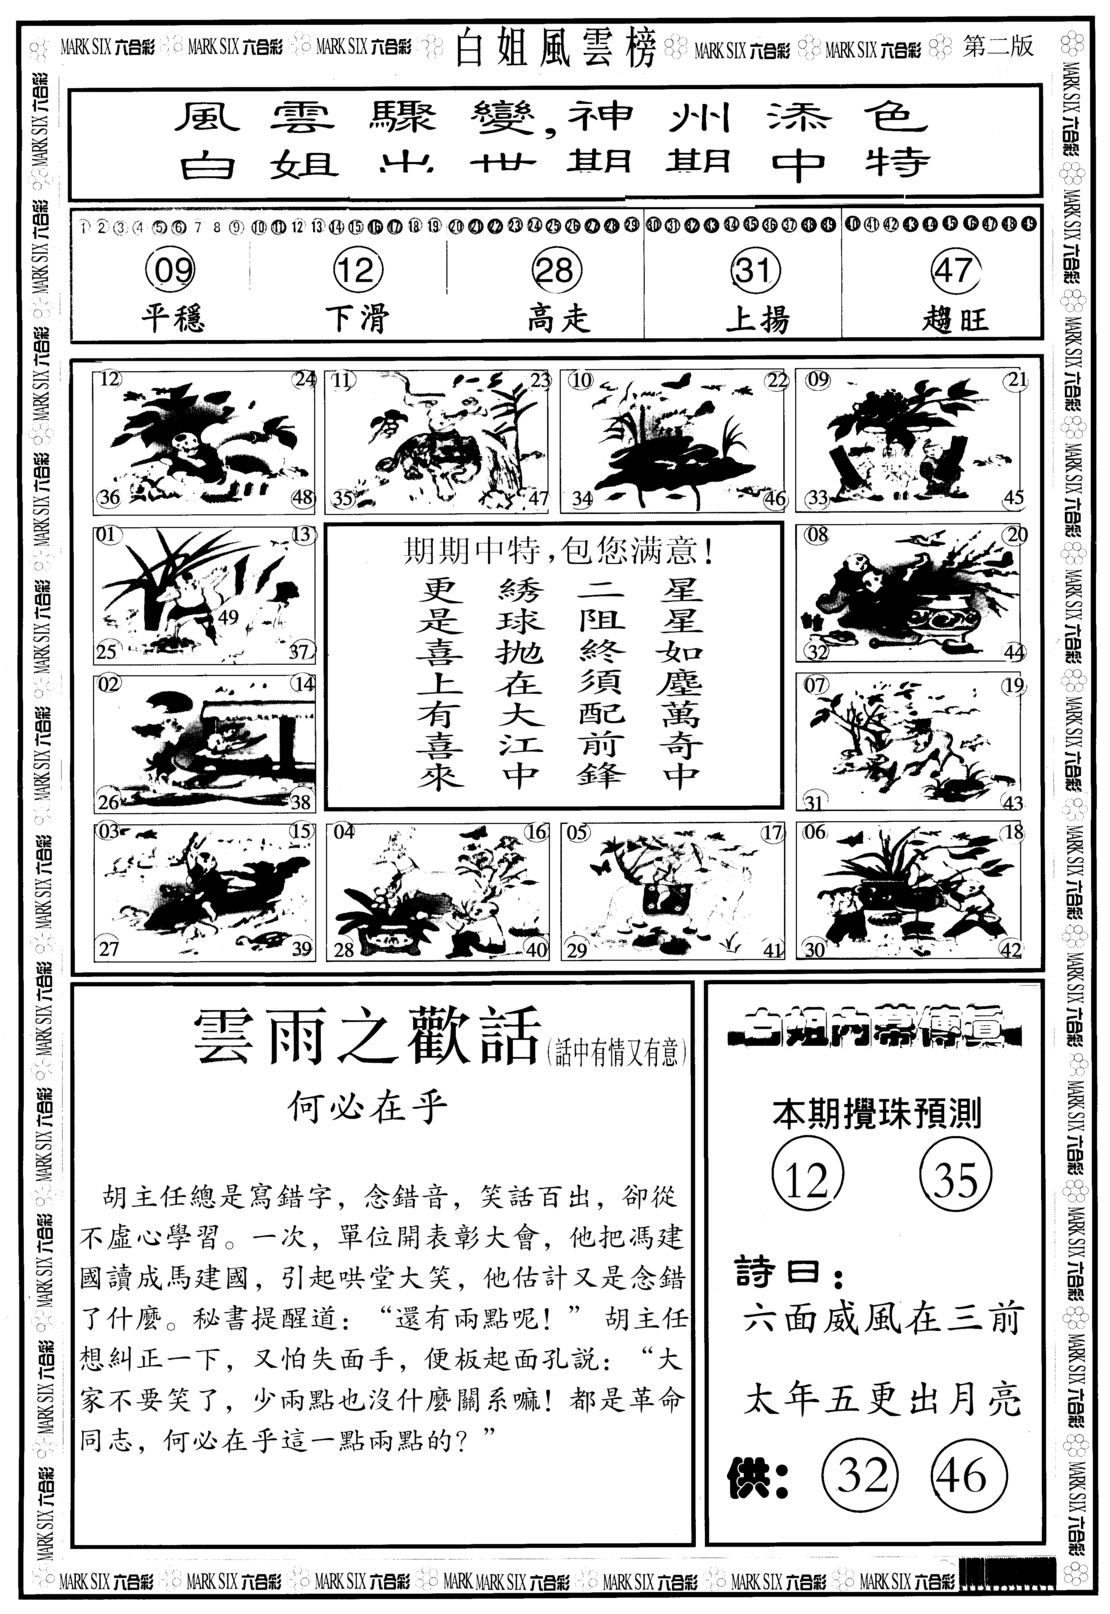 MARK SIX 六合彩 MARK SIX 六合彩 MARK SIX 六合彩 白姐風雲榜 MARK SIX 六合彩 MARK SIX 六合彩 第二版
風雲驟變,神州添色
白姐出世期期中特
1 2 3 4 5 6 7 8 9 10 11 12 13 14 15 16 17 18 19 20 21 22 23 24 25 26 27 28 29 30 31 32 33 34 35 36 37 38 39 40 41 42 43 44 45 46 47 48 49
09 12 28 31 47
平穩 下滑 高走 上揚 趨旺
12 24 11 23 10 22 09 21
36 48 35 47 34 46 33 45
01 13 08 20
49
25 37 32 44
02 14 07 19
26 38 31 43
期期中特,包您满意!
星星如塵萬奇中
二阻終須配前鋒
綉球抛在大江中
更是喜上有喜來
03 15 04 16 05 17 06 18
27 39 28 40 29 41 30 42
雲雨之歡話(話中有情又有意)
何必在乎
胡主任總是寫錯字，念錯音，笑話百出，卻從
不虛心學習。一次，單位開表彰大會，他把馮建
國讀成馬建國，引起哄堂大笑，他估計又是念錯
了什麼。秘書提醒道：“還有兩點呢！” 胡主任
想糾正一下，又怕失面手，便板起面孔説：“大
家不要笑了，少兩點也沒什麼關系嘛！都是革命
同志，何必在乎這一點兩點的？”
白姐内幕傳真
本期攪珠預測
12 35
詩曰：
六面威風在三前
太年五更出月亮
供： 32 46
MARK SIX 六合彩 MARK SIX 六合彩 MARK SIX 六合彩 MARK MARK SIX 六合彩 MARK SIX 六合彩 MARK SIX 六合彩 MARK SIX 六合彩